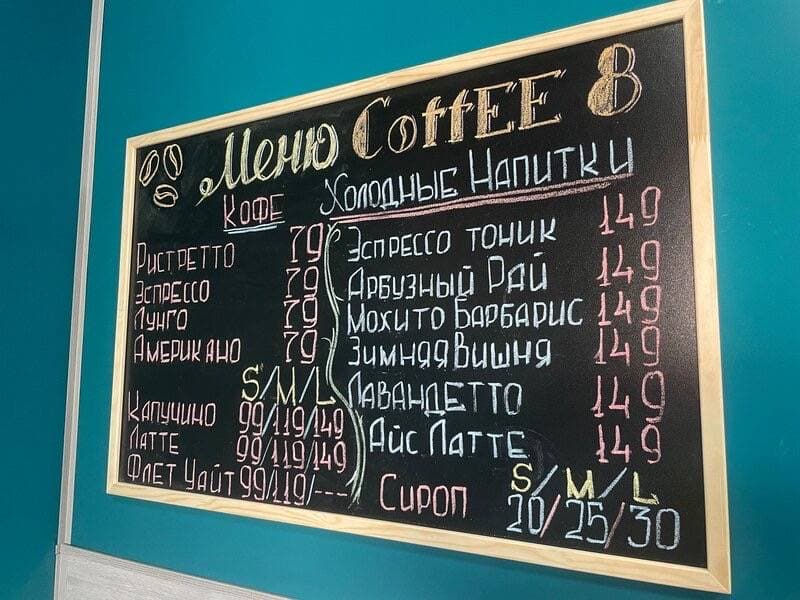 Меню CoffEE 8
Кофе
Ристретто 79
Эспрессо 79
Лунго 79
Американо 79
S/M/L
Капучино 99/119/149
Латте 99/119/149
Флет Уайт 99/119/---
Холодные Напитки
Эспрессо тоник 149
Арбузный Рай 149
Мохито Барбарис 149
Зимняя Вишня 149
Лавандетто 149
Айс Латте 149
S/M/L
Сироп 20/25/30